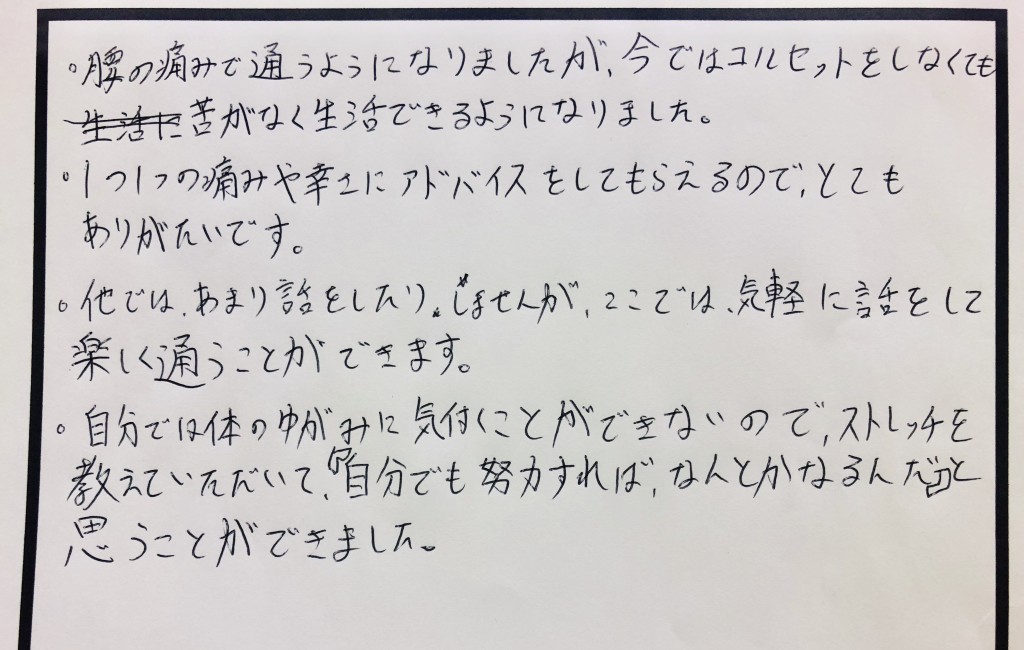 。腰の痛みで通うようになりましたが、今ではコルセットをしなくても
生活に苦がなく生活できるようになりました。
。1つ1つの痛みや辛さにアドバイスをしてもらえるので、とても
ありがたいです。
。他では、あまり話をしたりしませんが、ここでは、気軽に話をして
楽しく通うことができます。
。自分では体のゆがみに気付くことができないので、ストレッチを
教えていただいて、自分でも努力すれば、なんとかなるんだと
思うことができました。